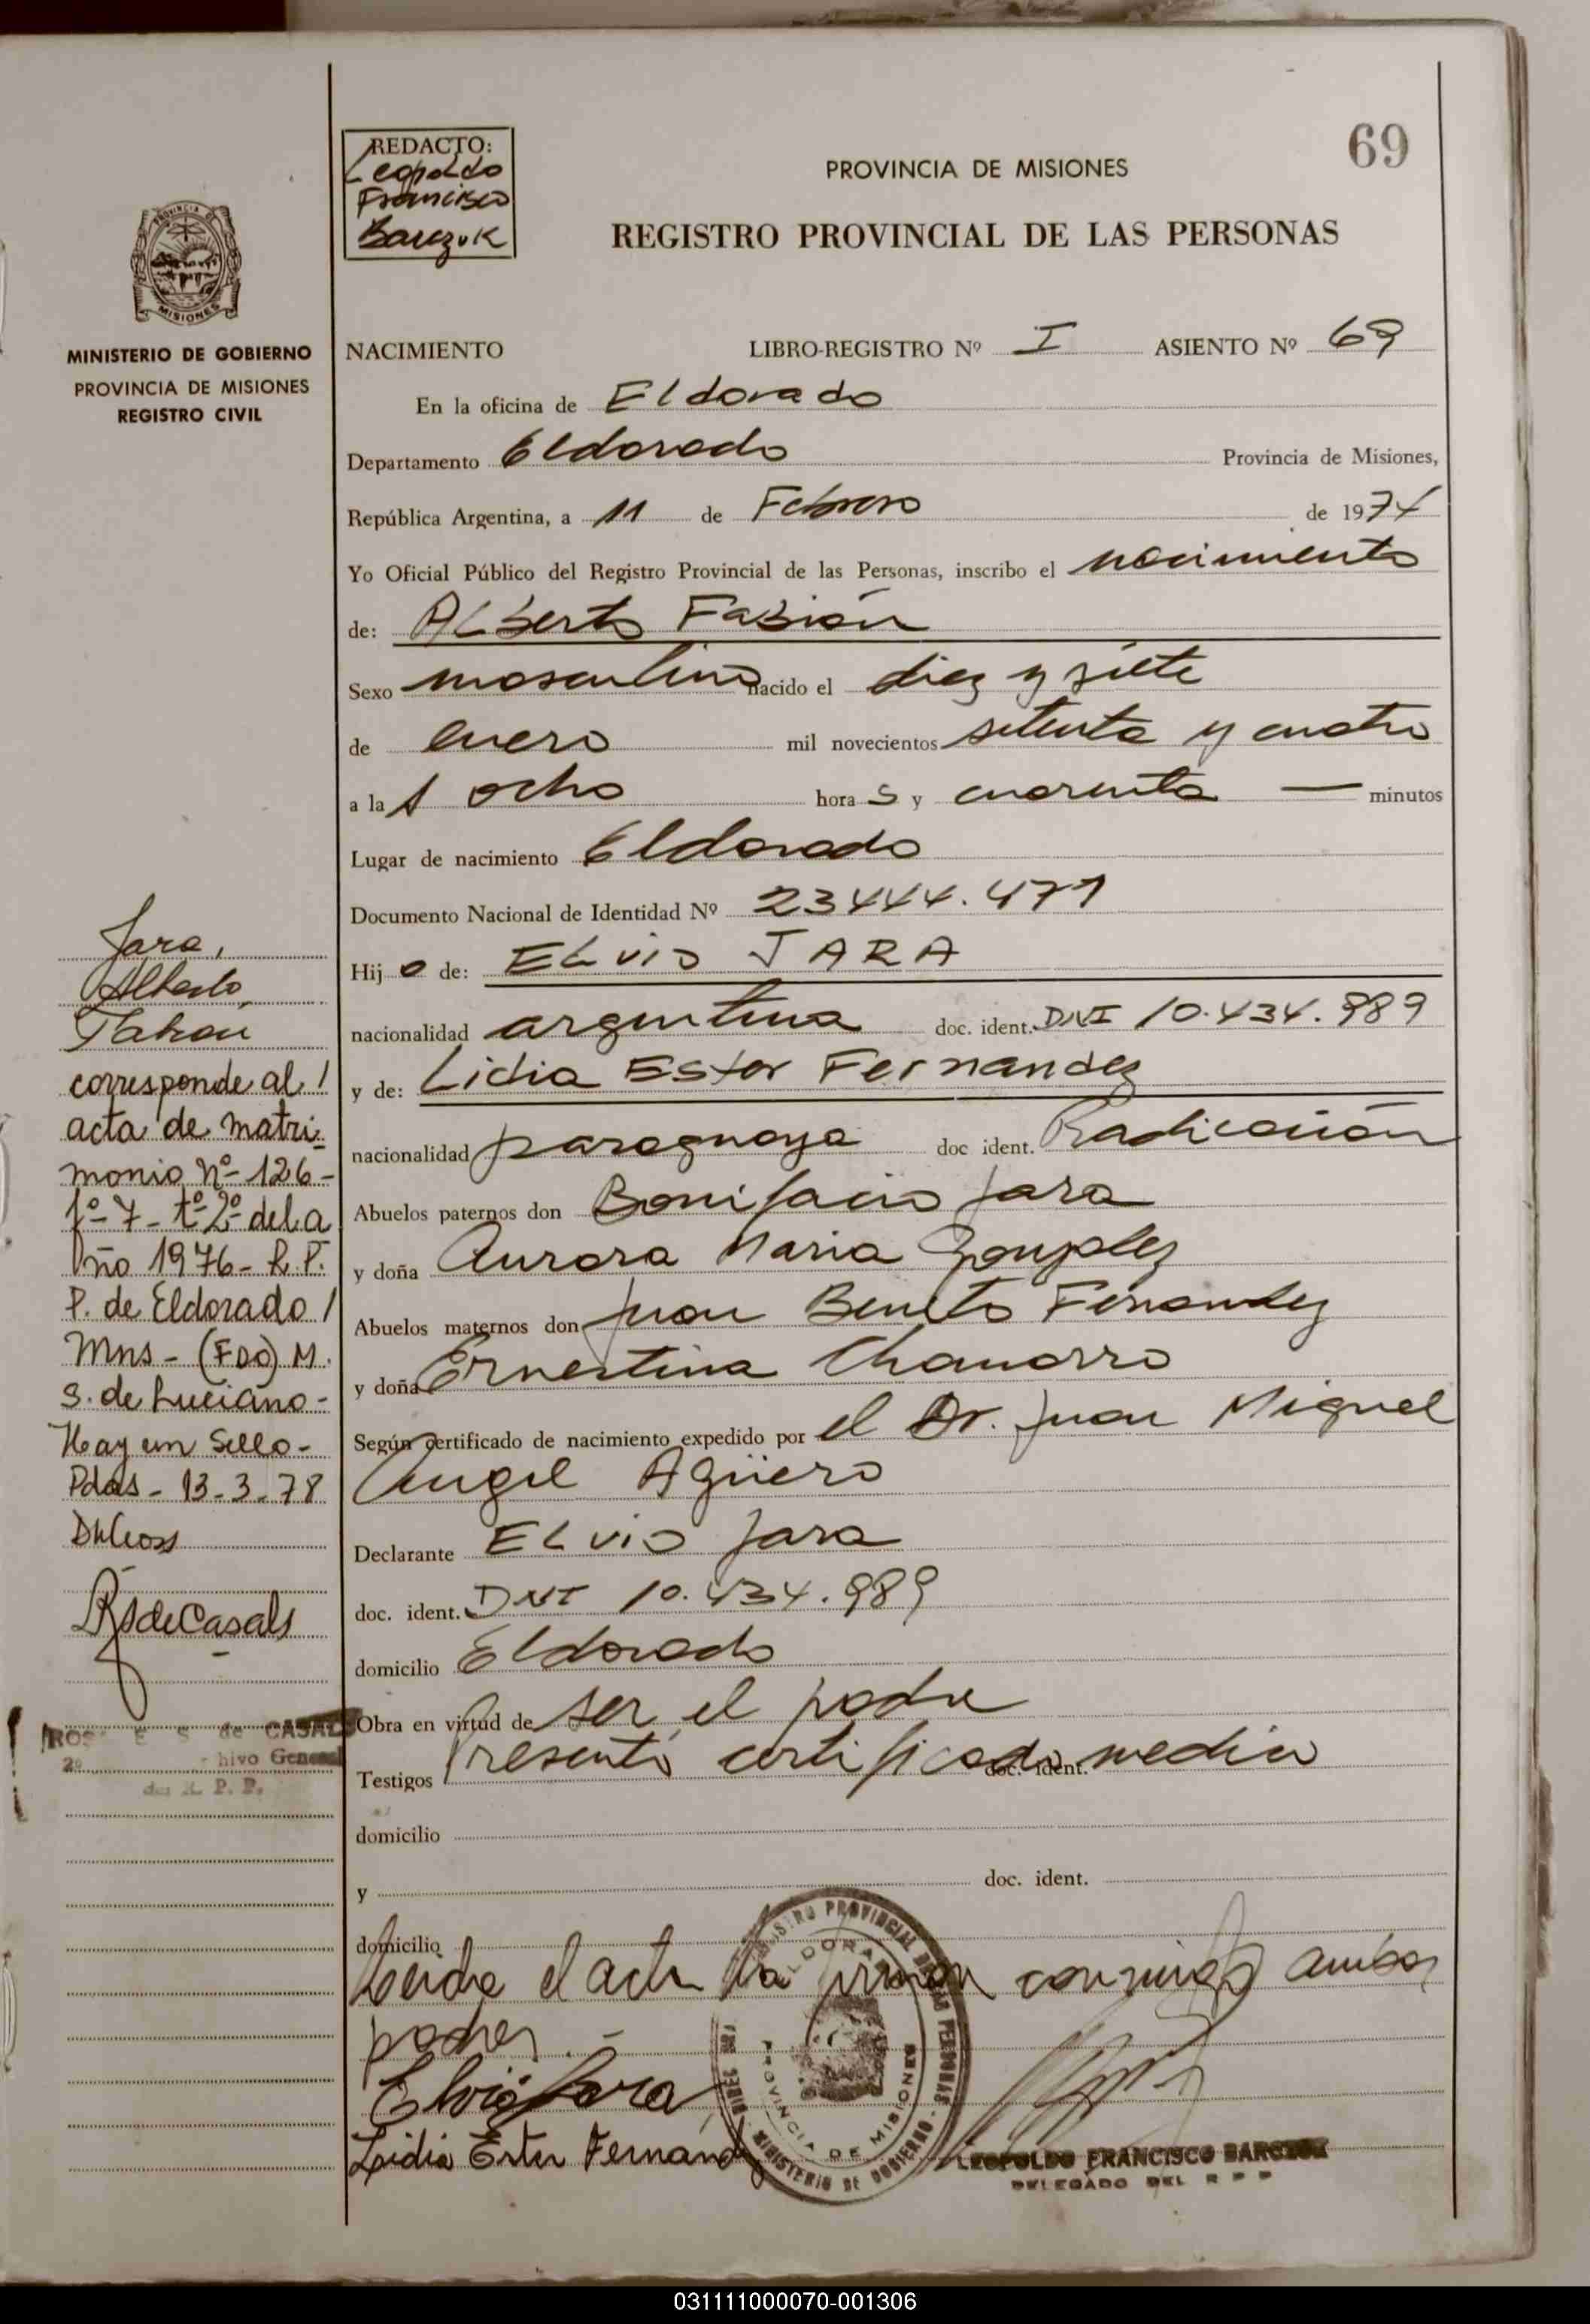 69
REDACTO:
Leopoldo
Francisco
Barczuk
PROVINCIA DE MISIONES
REGISTRO PROVINCIAL DE LAS PERSONAS
PROVINCIA DE
MISIONES
MINISTERIO DE GOBIERNO
PROVINCIA DE MISIONES
REGISTRO CIVIL
NACIMIENTO LIBRO-REGISTRO Nº I ASIENTO Nº 69
En la oficina de Eldorado
Departamento Eldorado Provincia de Misiones,
República Argentina, a 11 de Febrero de 1974
Yo Oficial Público del Registro Provincial de las Personas, inscribo el nacimiento
de: Alberto Fabián
Sexo masculino nacido el diez y siete
de enero mil novecientos setenta y cuatro
a la s ocho hora s y cuarenta — minutos
Lugar de nacimiento Eldorado
Documento Nacional de Identidad Nº 23444.471
Hij o de: ELVIO JARA
nacionalidad argentina doc. ident. DNI 10.434.989
y de: Lidia Ester Fernandez
nacionalidad paraguaya doc ident. Radicación
Abuelos paternos don Bonifacio Jara
y doña Aurora Maria Gonzalez
Abuelos maternos don Juan Benito Fernandez
y doña Ernestina Chamorro
Según certificado de nacimiento expedido por el Dr. Juan Miguel
Angel Agüero
Declarante ELVIO Jara
doc. ident. DNI 10.434.989
domicilio Eldorado
Obra en virtud de ser el padre
Testigos Presentó certificado medico doc. ident.
domicilio
y doc. ident.
domicilio
Leida el acta la firman conmigo ambos
padres.-
Elvio Jara
Lidia Ester Fernandez
REGISTRO PROVINCIAL DE LAS PERSONAS
ELDORADO
PROVINCIA DE MISIONES
MINISTERIO DE GOBIERNO
LEOPOLDO FRANCISCO BARCZUK
DELEGADO DEL R P P
Jara,
Alberto,
Fabian
corresponde al /
acta de matri-
monio nº 126-
fº- 7- tº 2º del a
ño 1976- R.P.
P. de Eldorado /
Mns- (FDO) M.
S. de Luciano-
Hay un Sello-
Pdas- 13-3-78
RSdeCasals
ROS E S de CASALS
2º hivo General
del R. P. P.
031111000070-001306